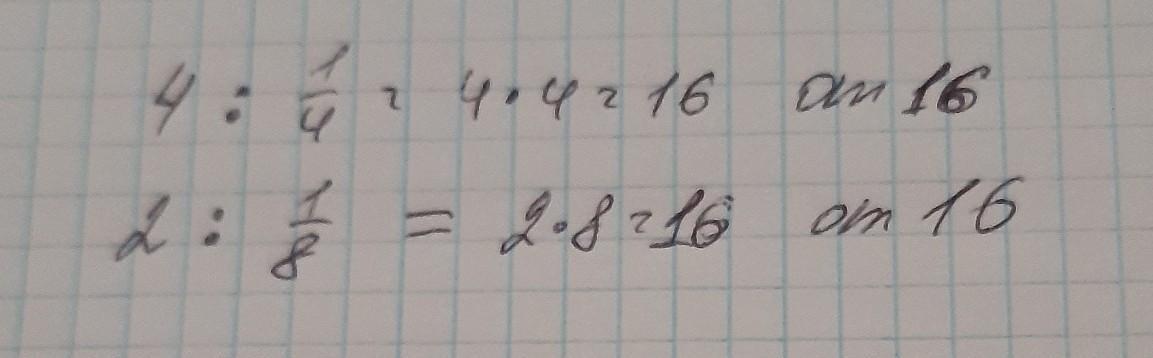 4 : 1/4 = 4 · 4 = 16 от 16
2 : 1/8 = 2 · 8 = 16 от 16